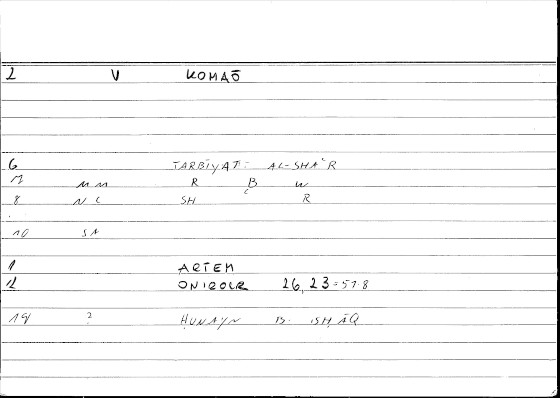 2 V KOMAŌ
6 TARBIYAT: AL-SHA'R
7 MM R B W
8 NC SH R
10 SN
1 ARTEM
12 ONIROCR 26,23=51.8
19 ? ḤUNAYN B. ISḤĀQ